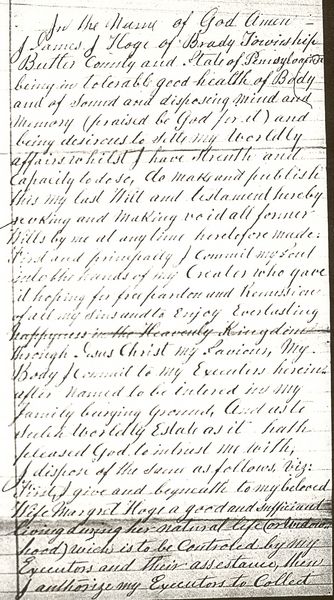 In the Name of God Amen
I James J Hoge of Brady Township
Butler County and State of Pensylvania
being in tolerable good health of Body
and of Sound and disposing mind and
Memory (praised be God for it) and
being desirous to settle my Worldly
affairs whilst I have Strenth and
Capacity to do so, do make and publish
this my last Will and testament hereby
revoking and making void all former
Wills by me at any time heretofore made:
First and principally I Commit my Soul
into the hands of my Creater who gave
it hoping for free pardon and Remission
of all my Sins and to Enjoy Everlasting
happyness in the Heavenly Kingdom
through Jesus Christ my Saviour, My
Body I Commit to my Executers herein
after named to be intered in my
family burying ground, And as to
Such Worldly Estate as it hath
pleased God to intrust me with,
I dispose of the Same as follows, viz:
First, I give and bequeath to my beloved
Wife Margret Hoge a good and sufficient
living during her natural life (or Widow
hood) wich is to be Controled by my
Executors and their assistance, then
I authorize my Executors to Collect